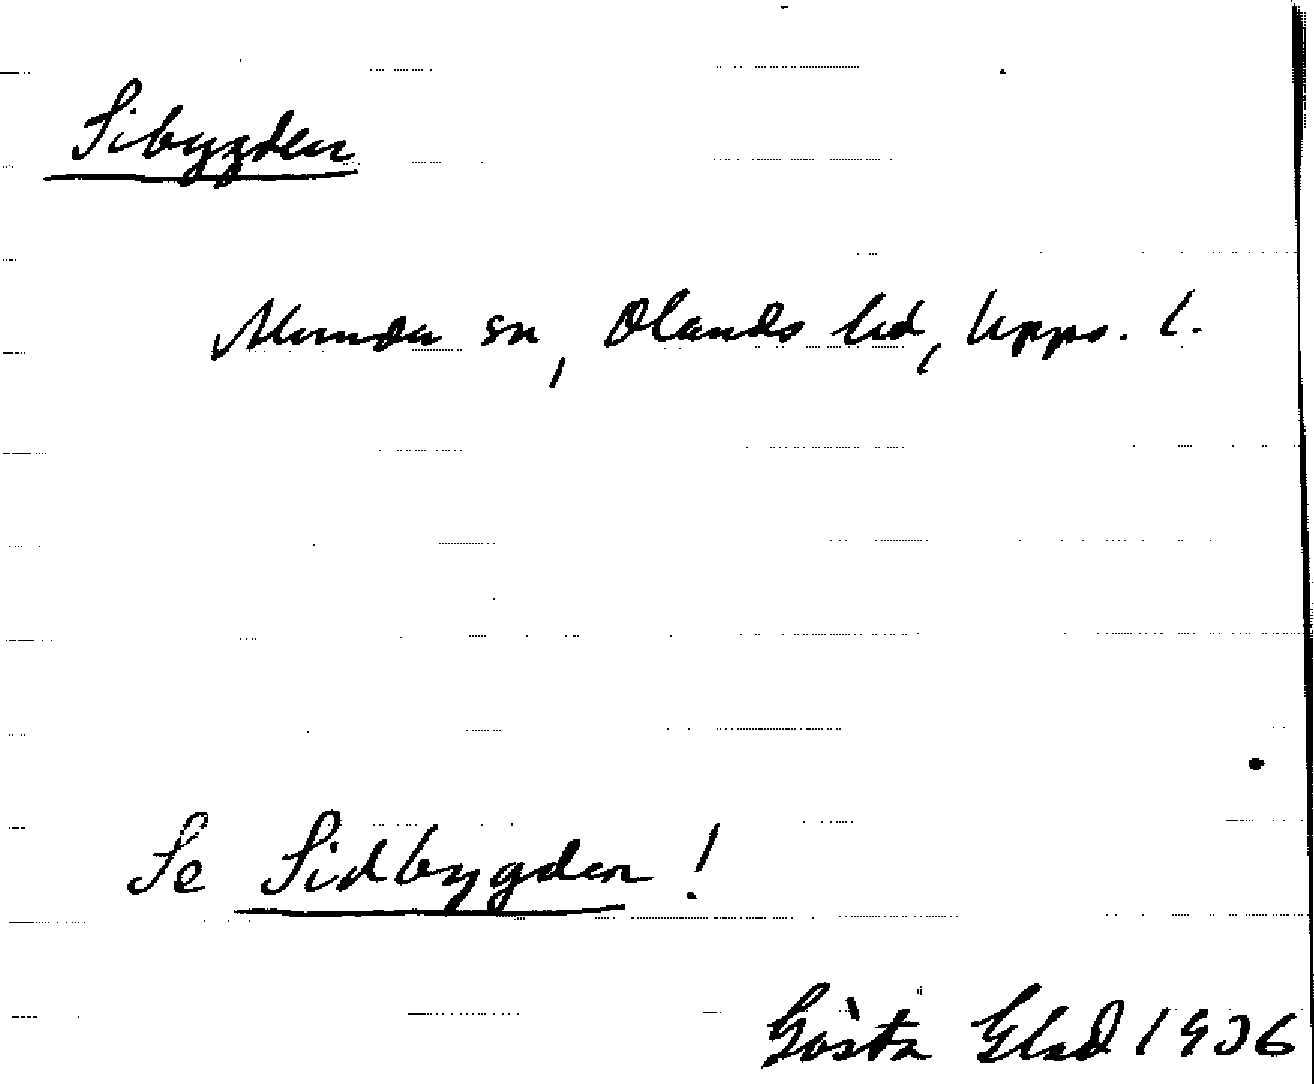 Sibygden
Alunda sn, Olands hd, Upps. l.
Se Sidbygden!
Gösta Glad 1936